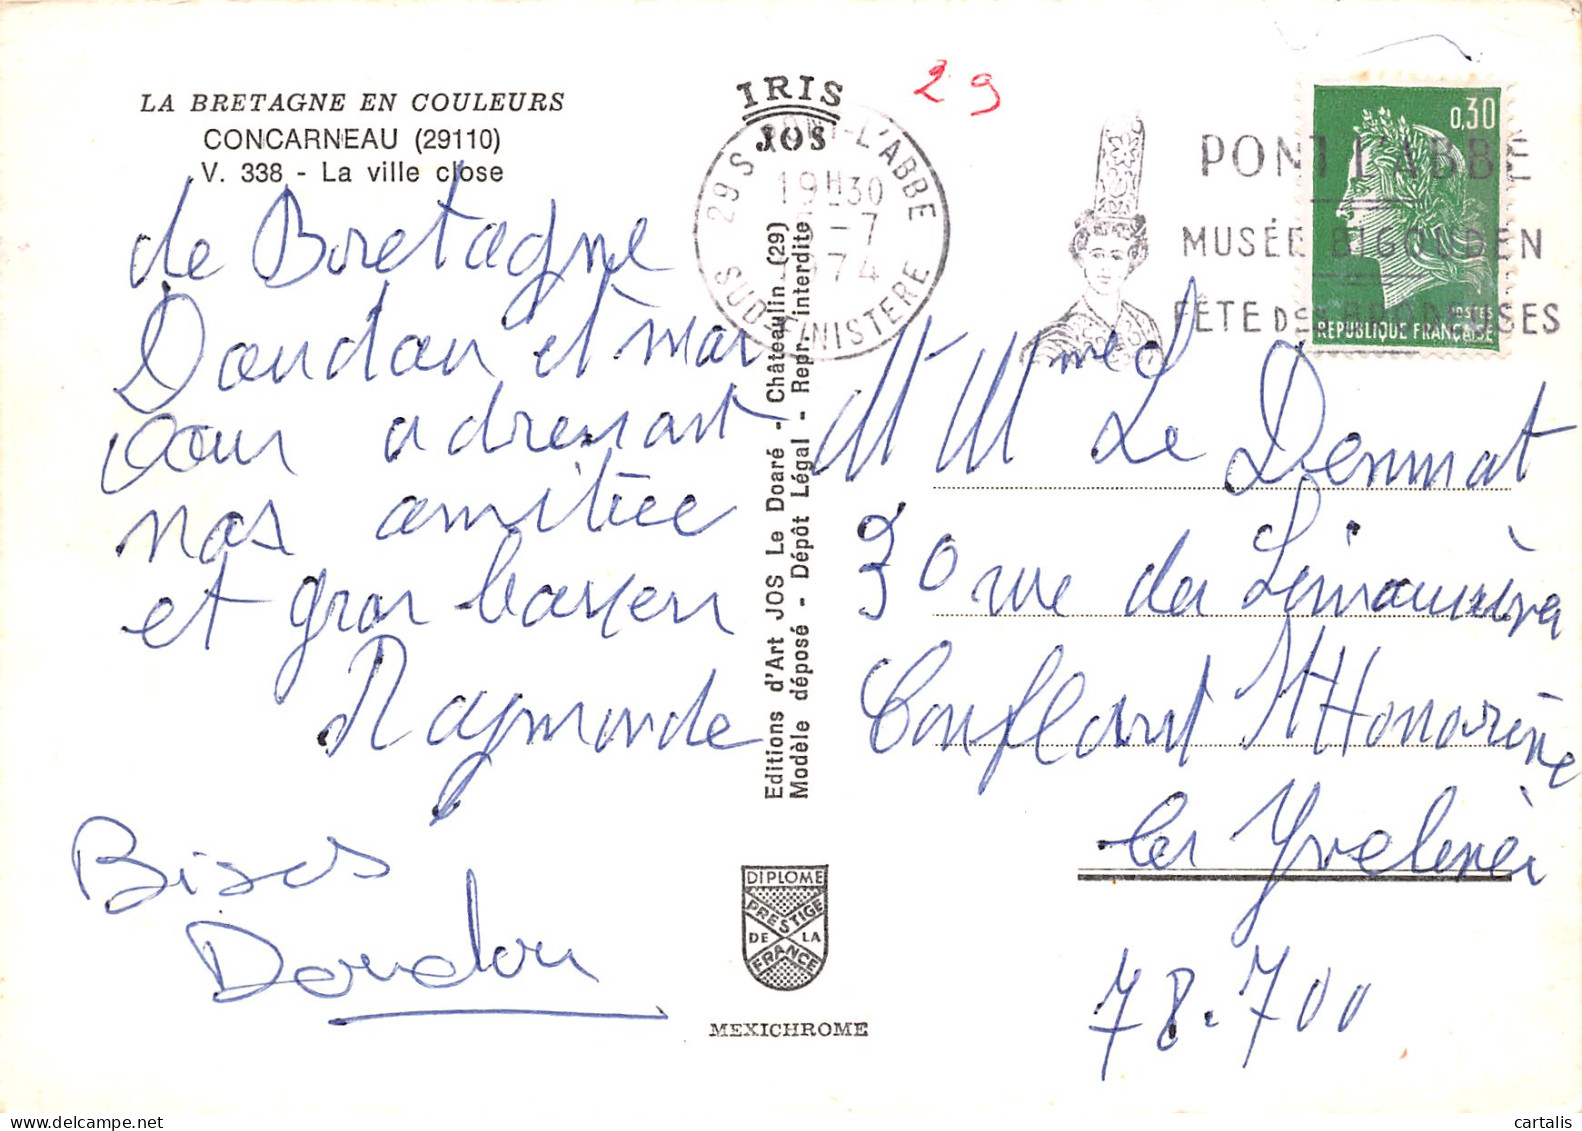 LA BRETAGNE EN COULEURS
CONCARNEAU (29110)
V. 338 - La ville close
de Bretagne
Doudou et moi
vous adressont
nos amitiée
et gros baisers
Raymonde
Bises
Doudou
IRIS
JOS
29
29 S PONT-L'ABBE
19H30
-7
1974
SUD-FINISTERE
PONT L'ABBE
MUSÉE BIGOUDEN
FÊTE DES BRODEUSES
0,30
POSTES
REPUBLIQUE FRANÇAISE
Editions d'Art JOS Le Doaré - Châteaulin (29)
Modèle déposé - Dépôt Légal - Repr. interdite
M Mme Le Dennat
30 rue des
Conflant St Honorine
les Yvelines
78.700
DIPLOME
PRESTIGE
DE LA
FRANCE
MEXICHROME
cartalis